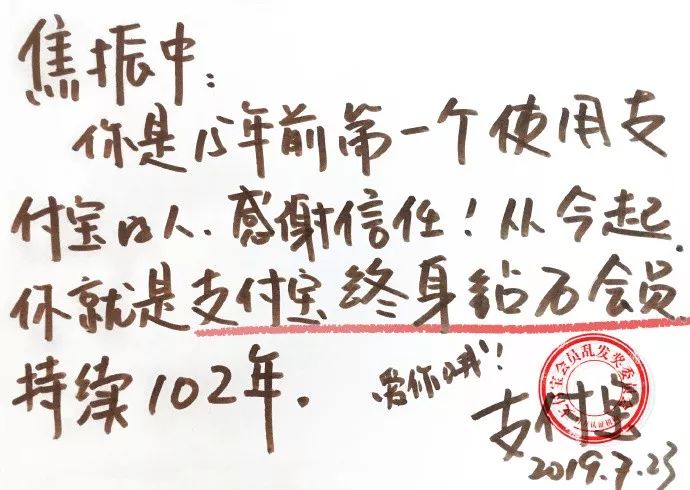 焦振中:
你是15年前第一个使用支
付宝的人.感谢信任!从今起.
你就是支付宝终身钻石会员.
持续102年.
爱你哦!
支付宝
2019.7.23